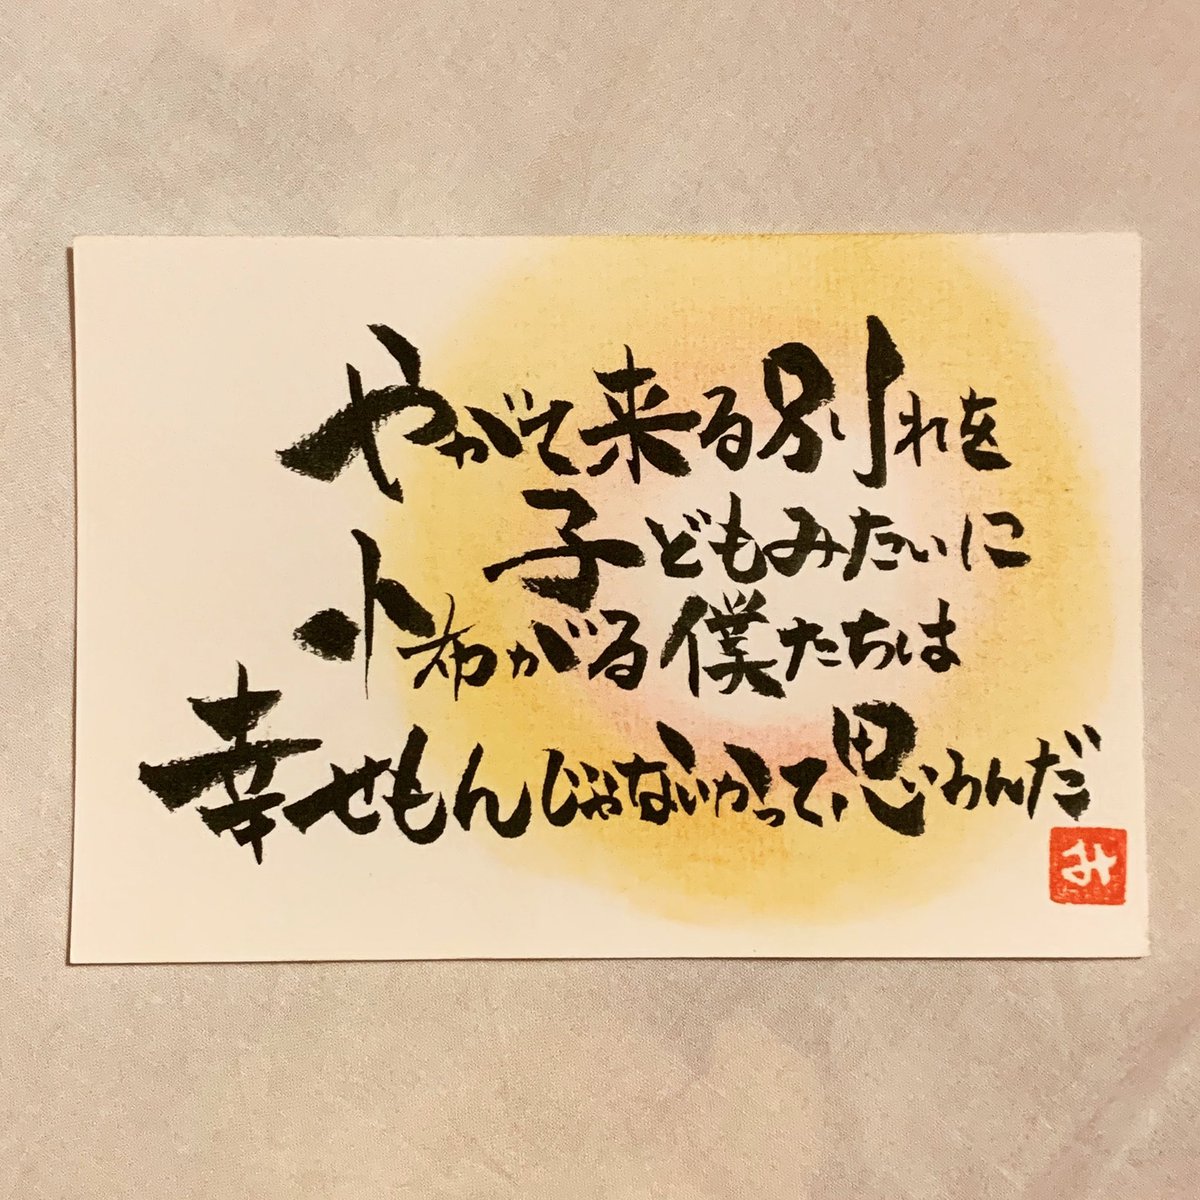 やがて来る別れを
子どもみたいに
怖がる僕たちは
幸せもんじゃないかって、思うんだ
み